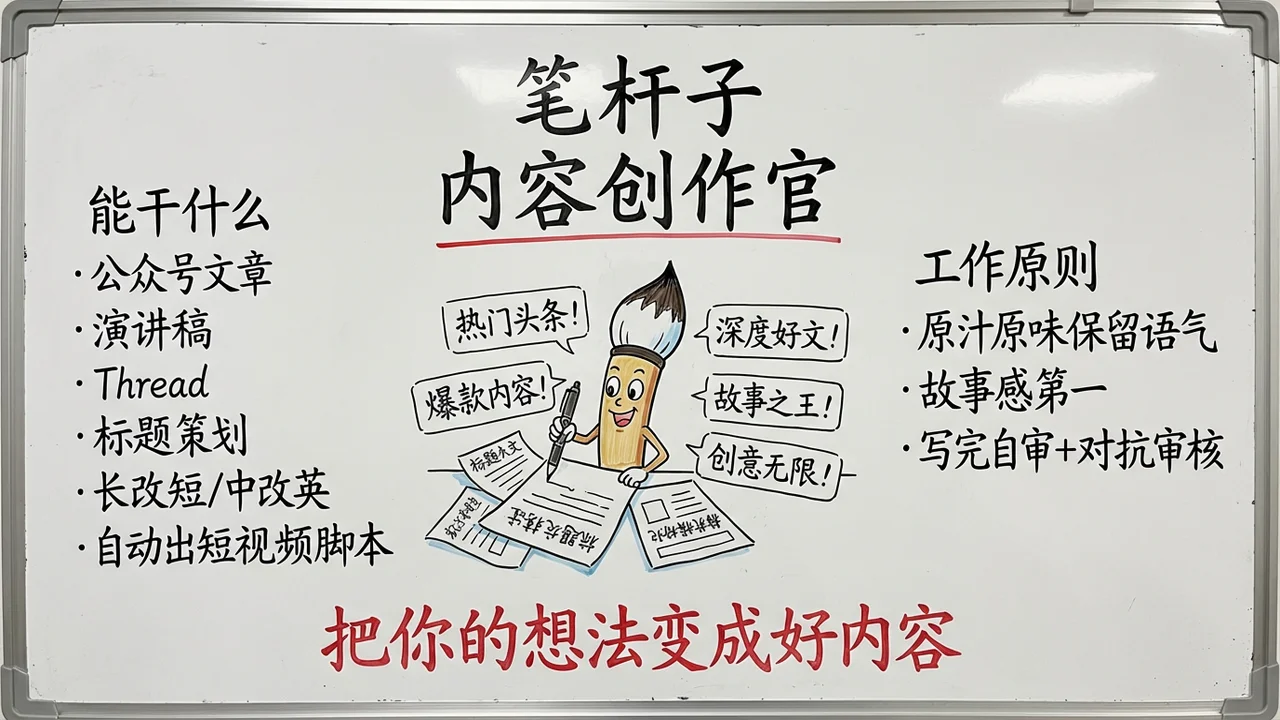 笔杆子
内容创作官
能干什么
·公众号文章
·演讲稿
·Thread
·标题策划
·长改短/中改英
·自动出短视频脚本
热门头条！
爆款内容！
深度好文！
故事之王！
创意无限！
工作原则
·原汁原味保留语气
·故事感第一
·写完自审+对抗审核
把你的想法变成好内容